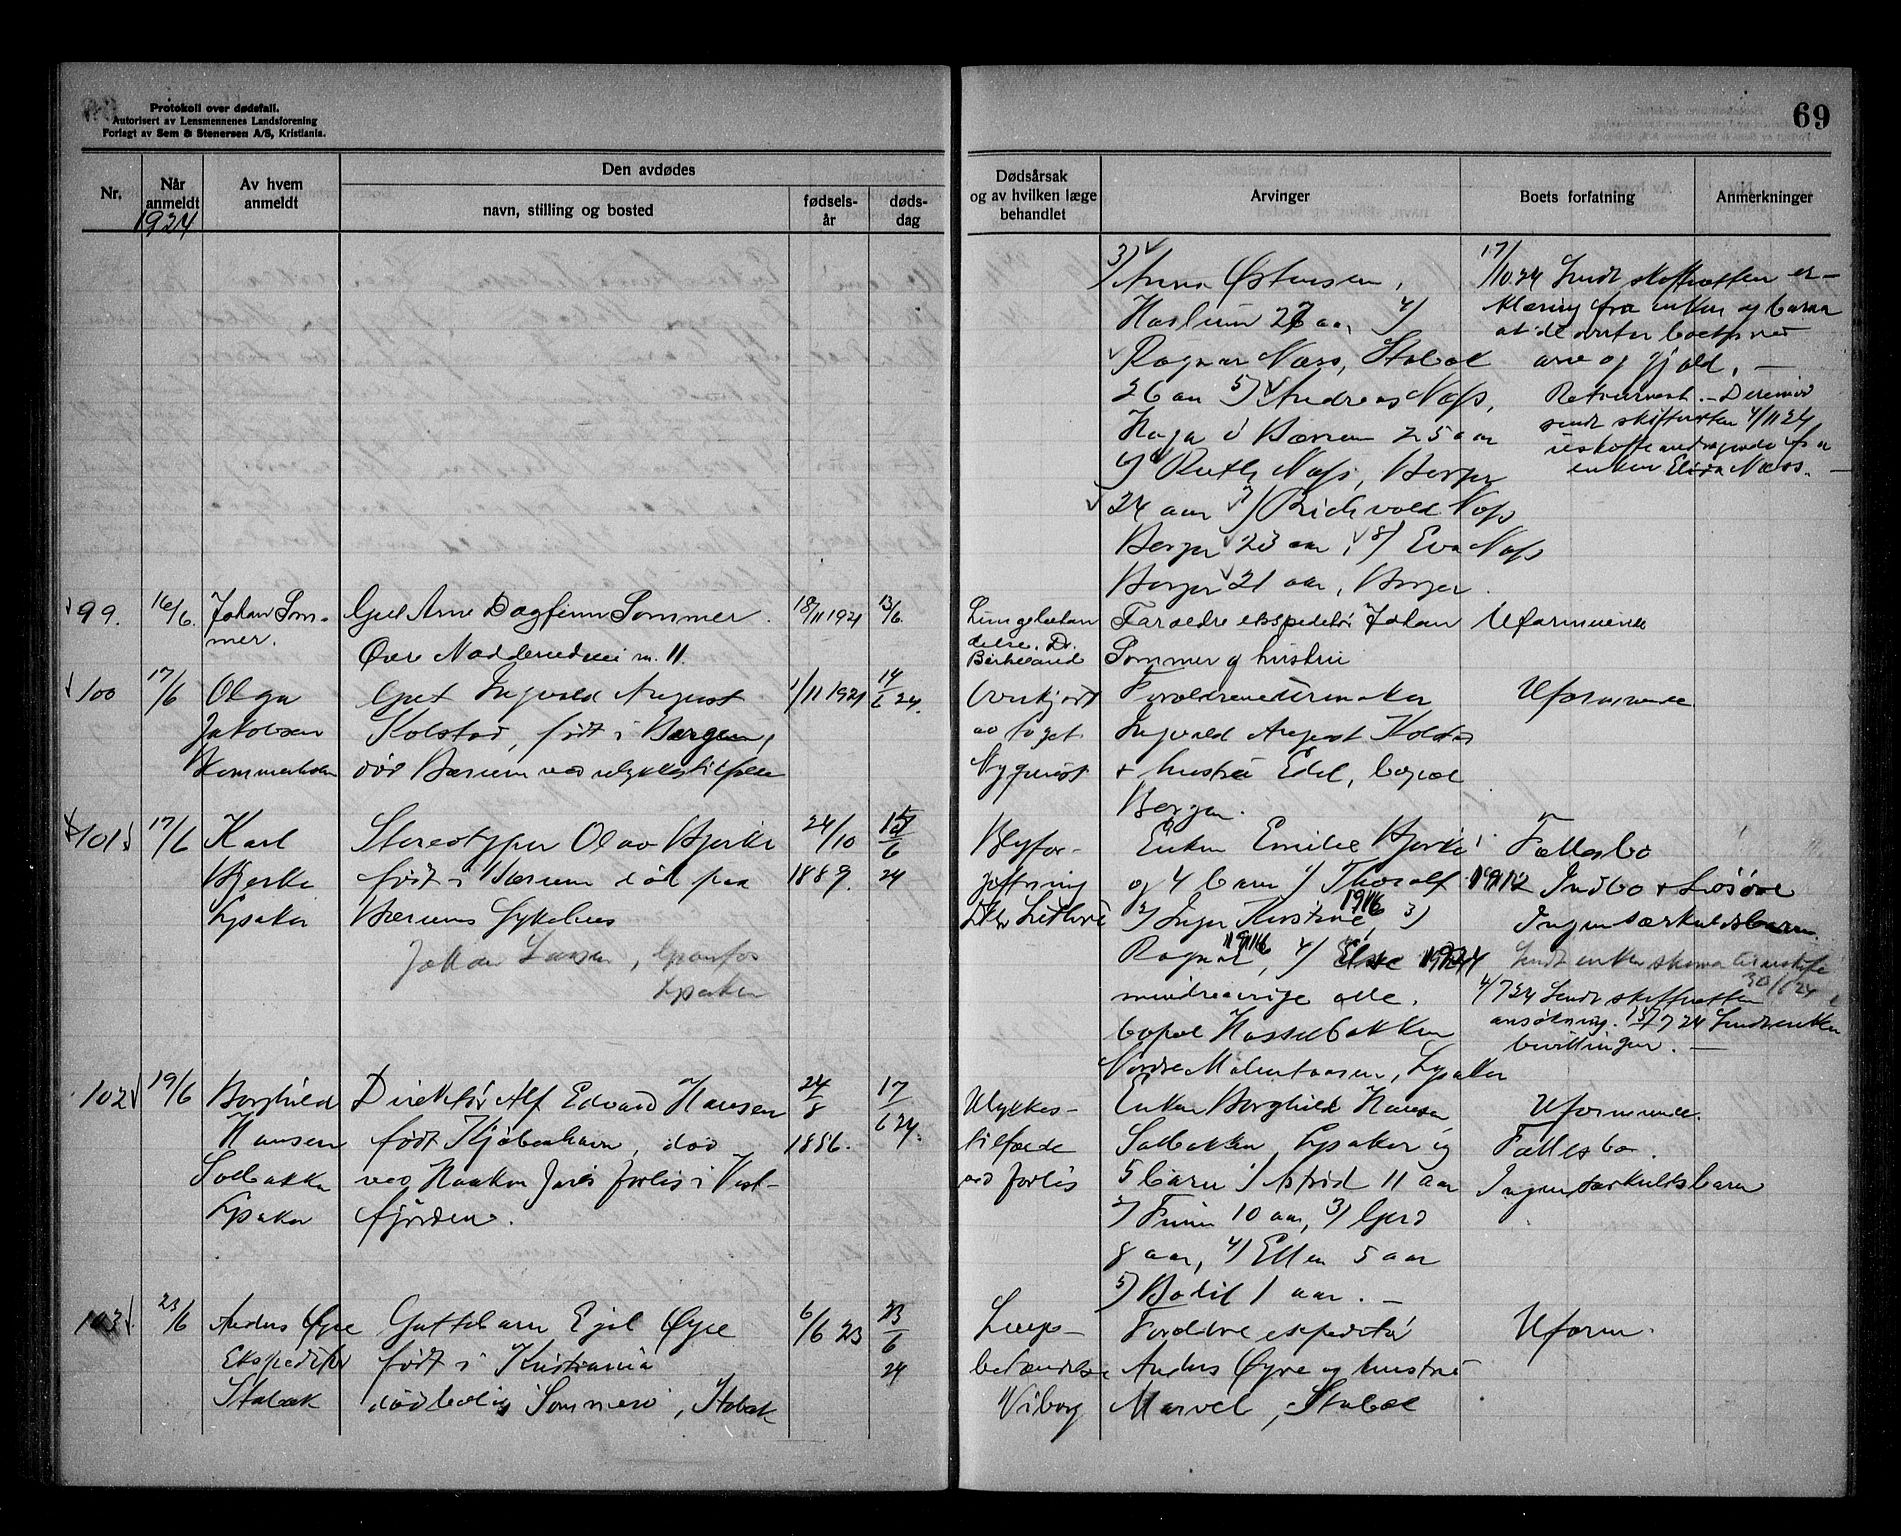 Protokoll over dødsfall.
Autorisert av Lensmennenes Landsforening
Forlagt av Sem & Stenersen A/S, Kristiania.
69
Nr.
Når anmeldt
1924
Av hvem anmeldt
Den avdødes
navn, stilling og bosted
fødsels-år
døds-dag
Dødsårsak og av hvilken læge behandlet
Arvinger
Boets forfatning
Anmerkninger
3) Anna Østensen,
Haslum 27 aar 4)
Ragnar Næss, Stabæk
26 aar 5) Andreas Næss,
Haga i Bærum 25 aar
6) Ruth Næss, Berger
24 aar 7) Næss
Berger 23 aar, 8) Eva Næss
Berger 21 aar, Berger.
17/10 24 Sendt skifteretten er-
klæring fra enken og barna
at de overtar boet med
arv og gjæld. —
Returnert. —
sendt skifteretten 4/11 24
fra
enken Næss. —
99.
16/6.
Johan Som-
mer.
Gut Arne Dagfinn Sommer.
Øvre Nadderudvei nr. 11.
18/11 1921
13/6.
Lungebetæn
delse. Dr.
Birkeland
Foræeldre ekspeditør Johan
Sommer og hustru
Uformuende
100
17/6
Olga
Jakobsen
Gut Ingvald August
Kolstad, født i Bergen,
død Bærum ved ulykkestilfælde
1/11 1921
14/6 24.
Overkjørt
av toget
Nyquist
Ingvald August Kolstad
+ hustru Edel, bopæl
Bergen.
Uformuende
101
17/6
Karl
Bjerke
Lysaker
Stereotypør Olav Bjerke
født i Bærum død paa
Bærums Sykehus
Johan Larsen, Granfos
Lysaker
24/10
1889.
15/6
24
Blyfor-
giftning
Enken Emilie Bjerke
og 4 barn 1) Thoralf 1912
2) Inger Kirstine 1916, 3)
Ragnar 1916, 4) 1924
mindreaarige alle.
bopæl Hasselbakken
Lysaker
Fællesbo
Indbo + Løsøre
Ingen særkuldsbarn.
Sendt enken skema
30/6 24
4/7 24 Sendt skifteretten
ansökning. 15/7 24 Sendt enken
bevillingen. —
102
19/6
Borghild
Hansen
Solbakken
Lysaker
Direktør Alf Edvard Hansen
født Kjøbenhavn, død
ved Haakon Jarls forlis i Vest-
fjorden.
24/8
1886.
17/6 24.
Ulykkes-
tilfælde
ved forlis
Enken Borghild Hansen
Solbakken Lysaker og
5 barn 1) Astrid 11 aar
2) Finn 10 aar, 3) Gerd
8 aar, 4) Ellen 5 aar
5) Bodil 1 aar. —
Uformuende.
Fællesbo.
Ingen særkuldsbarn
103
23/6
Anders Øyre
Ekspeditør
Stabæk
Guttebarn Egil Øyre
født i Kristiania
død bolig Sommero, Stabæk
6/6 23
23/6
24
Lunge-
betændelse
Viborg
Forældre ekspeditør
Anders Øyre og hustru
Marvel, Stabæk
Uform.